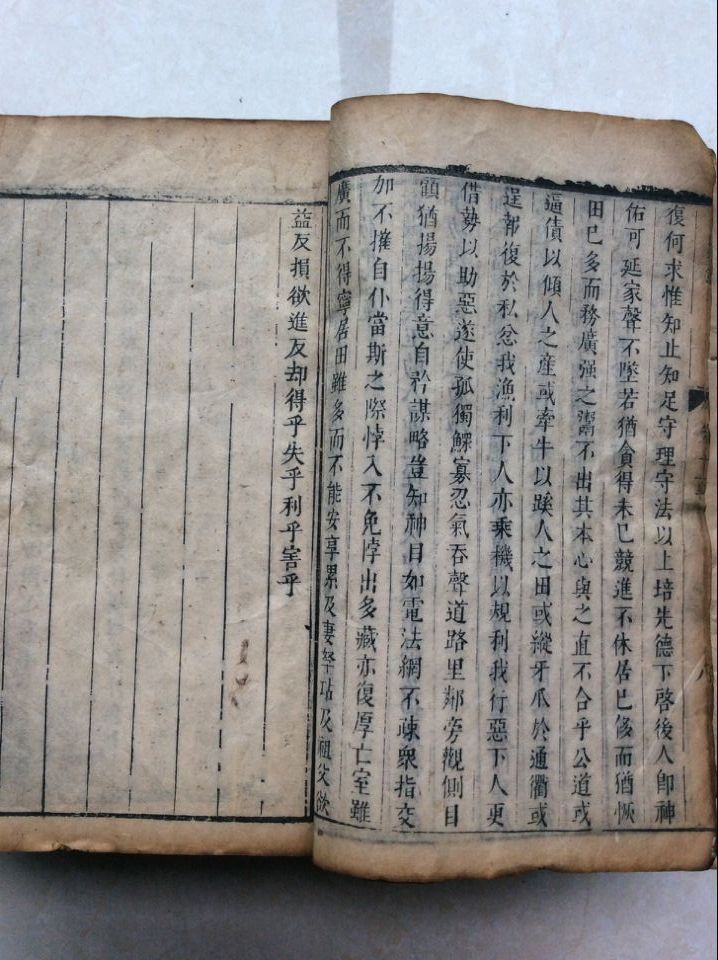 復何求惟知止知足守理守法以上培先德下啓後人卽神
佑可延家聲不墜若猶貪得未已競進不休居已侈而猶恢
田已多而務廣强之鬻不出其本心與之直不合乎公道或
逼債以傾人之產或牽牛以蹊人之田或縱牙爪於通衢或
逞報復於私忿我漁利下人亦乘機以規利我行惡下人更
借勢以助惡遂使孤獨鰥寡忍氣吞聲道路里鄰旁觀側目
顧猶揚揚得意自矜謀略豈知神目如電法網不疎衆指交
加不摧自仆當斯之際悖入不免悖出多藏亦復厚亡室雖
廣而不得寧居田雖多而不能安享累及妻孥玷及祖父欲
益反損欲進反却得乎失乎利乎害乎